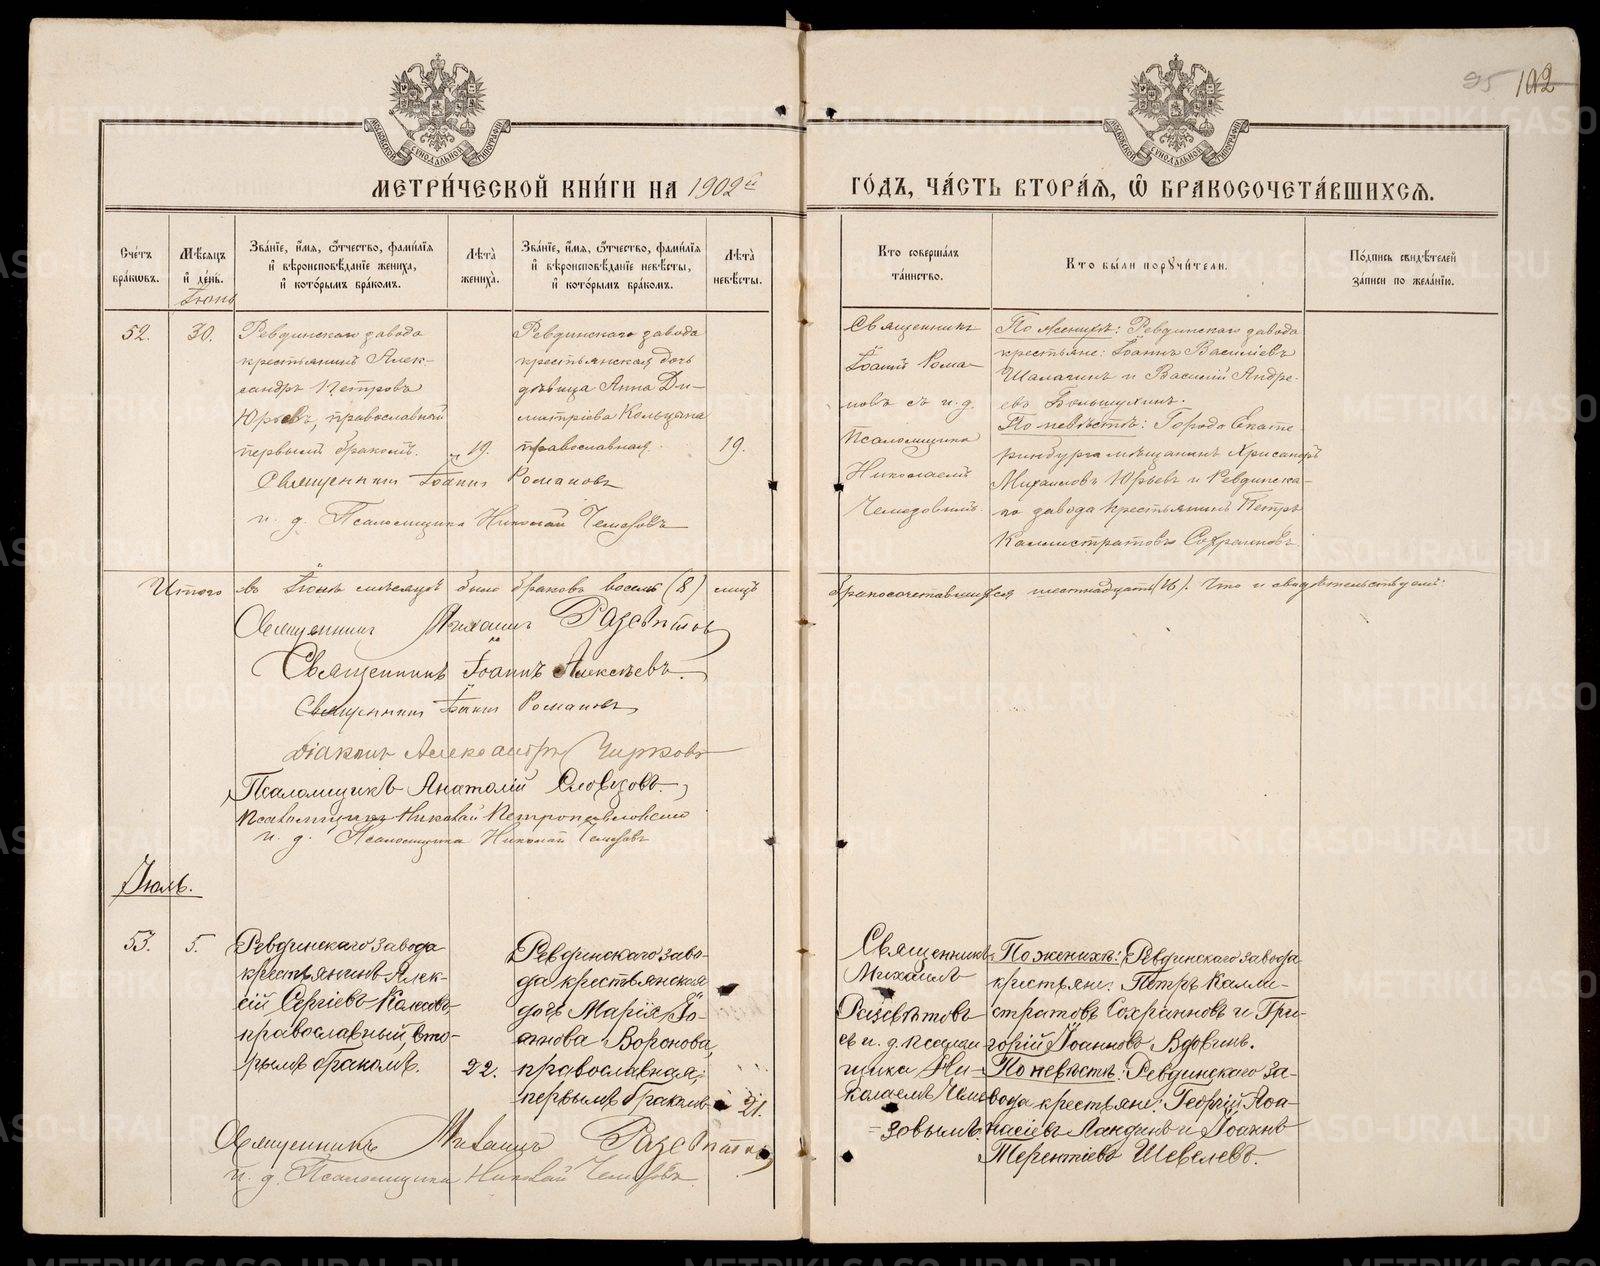 95 102
МОСКОВСКОЙ СѴНОДАЛЬНОЙ ТИПОГРАФІИ
МОСКОВСКОЙ СѴНОДАЛЬНОЙ ТИПОГРАФІИ
МЕТРИ́ЧЕСКОЙ КНИ́ГИ НА 1902й
ГО́ДЪ, ЧА́СТЬ ВТОРА́Я, Ѿ БРАКОСОЧЕТА́ВШИХСЯ.
Сче́тъ бра́кѡвъ.
Мѣ́сяцъ и҆ де́нь.
Зва́нїе, и҆́мя, ѻ҆́тчество, фамилїя и҆ вѣроисповѣ́данїе жениха̀, и҆ кото́рымъ бра́комъ.
Лѣ́та жениха̀.
Зва́нїе, и҆́мя, ѻ҆́тчество, фамилїя и҆ вѣроисповѣ́данїе невѣ́сты, и҆ кото́рымъ бра́комъ.
Лѣ́та невѣ́сты.
Кто̀ соверша́лъ та́инство.
Кто̀ бы́ли порꙋчи́тели.
По́дпись свидѣ́телей за́писи по жела́нїю.
Іюнь
52.
30.
Ревдинскаго завода
крестьянинъ Алек-
сандръ Петровъ
Юрьевъ, православный
первымъ бракомъ.
19.
Ревдинскаго завода
крестьянская дочь
дѣвица Анна Ди-
митріева Кольцына
православная.
19.
Священникъ
Іоаннъ Рома-
новъ съ и. д.
Псаломщика
Николаемъ
Чемезовымъ.
По женихѣ: Ревдинскаго завода
крестьяне: Іоаннъ Василіевъ
Шалагинъ и Василій Андре-
евъ Большухинъ.
По невѣстѣ: Города Екате-
ринбурга мѣщанинъ Хрисанѳъ
Михаиловъ Юрьевъ и Ревдинска-
го завода крестьянинъ Петръ
Каллистратовъ Сохранновъ.
Священникъ Іоаннъ Романовъ
и. д. Псаломщика Николай Чемезовъ
Итого въ Іюнѣ мѣсяцѣ было браковъ восемь (8) лицъ
бракосочетавшихся шестнадцать (16). Что и свидѣтельствуемъ:
Священникъ Михаилъ Разсвѣтовъ
Священникъ Іоаннъ Алексѣевъ.
Священникъ Іоаннъ Романовъ
Діаконъ Александръ Чирковъ
Псаломщикъ Анатолій Словцовъ.
Псаломщикъ Николай Петропавловскій
и. д. Псаломщика Николай Чемезовъ
Іюль.
53.
5.
Ревдинскаго завода
крестьянинъ Алек-
сій Сергіевъ Колесовъ
православный, вто-
рымъ бракомъ.
22.
Ревдинскаго заво-
да крестьянская
дочь Марія Іо-
аннова Воронова,
православная;
первымъ бракомъ
21.
Священникъ
Михаилъ
Разсвѣтовъ
съ и. д. псалом
щика Ни-
колаемъ Чеме
=зовымъ.
По женихѣ: Ревдинскаго завода
крестьяне: Петръ Калли-
стратовъ Сохранновъ и Гри-
горій Іоанновъ Вдовинъ.
По невѣстѣ: Ревдинскаго за-
вода крестьяне: Георгій Аѳа-
насіевъ Ландинъ и Іоаннъ
Терентіевъ Шевелевъ.
Священникъ Михаилъ Разсвѣтовъ
и. д. Псаломщика Николай Чемезовъ.